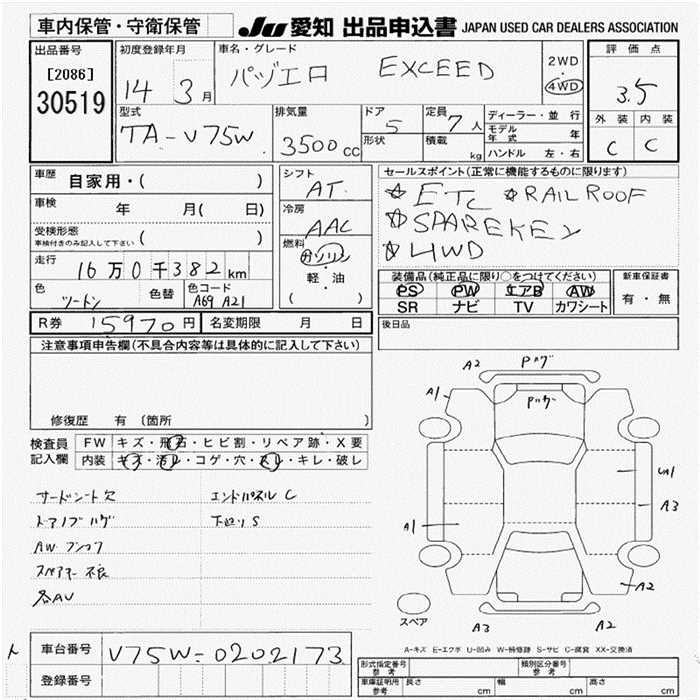 車内保管・守衛保管 JU 愛知 出品申込書 JAPAN USED CAR DEALERS ASSOCIATION
出品番号 初度登録年月 車名・グレード 2WD・4WD 評価点
[2086]
30519 14 3月 パジエロ EXCEED 3.5
型式 排気量 ドア 定員 ディーラー・並行 外装 内装
TA-V75W 3500cc 5 7人 モデル年式 年 C C
形状 積載 kg ハンドル 左・右
車歴 自家用・( ) シフト AT セールスポイント(正常に機能するものに限ります)
☆ETC ☆RAIL ROOF
車検 年 月( 日) 冷房 AAC ☆SPAREKEY
受検形態 ( )
車検付きのみ記入して下さい
燃料 ガソリン ☆4WD
走行 16万0千382km 軽・油 装備品(純正品に限り○をつけてください) 新車保証書
( ) PS PW エアB AW 有・無
色 ツートン 色替 色コード A69 A21 SR ナビ TV カワシート
R券 15970円 名変期限 月 日 後日品
注意事項申告欄(不具合内容等は具体的に記入して下さい)
修復歴 有 (箇所 )
検査員記入欄 FW キズ・飛石・ヒビ割・リペア跡・X要
内装 キズ・汚レ・コゲ・穴・スレ・キレ・破レ
サードシート欠 エンドパネルC
ドアノブハゲ 下廻りS
AW
スペアキー
各AU
A2 ハゲ
A1
UA1
A3
A1
A2
スペア A3 A2
A-キズ E-エクボ U-凹み W-補修跡 S-サビ C-腐食 XX-交換済
車台番号 V75W-0202173
登録番号
形式指定番号 参考 類別区分番号 参考
車庫証明用 参考 長さ cm 幅 cm 高さ cm